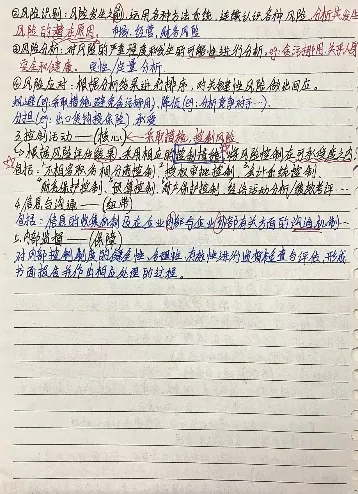 ②风险识别:风险发生之前,运用各种方法系统、连续认识各种风险,分析其发生
风险的潜在原因。 市场、经营、财务风险
③风险分析:对风险的严重程度和发生的可能性进行分析,
安全和健康。 定性/定量分析
④风险应对:根据分析结果进行排序,对关键性风险做出回应。
规避(eg:采取措施避免 )、降低(eg:分析竞争对手…)、
分担(eg:出口保险投保险)承受
3.控制活动——(核心)←采取措施,控制风险
↳根据风险评估结果,采用相应的控制措施,将风险控制在可承受度之内
包括:"不相容职务相分离控制""授权审批控制""会计系统控制
"财产保护控制、预算控制、 保护控制、经济活动分析/绩效考评…
4.信息与沟通——(纽带)
包括:信息的收集机制及在企业内部与企业外部有关方面的沟通机制…
5.内部监督——(保障)
对内部控制制度的健全性、合理性、有效性进行监督检查与评估,形成
书面报告并作出相应处理的过程。